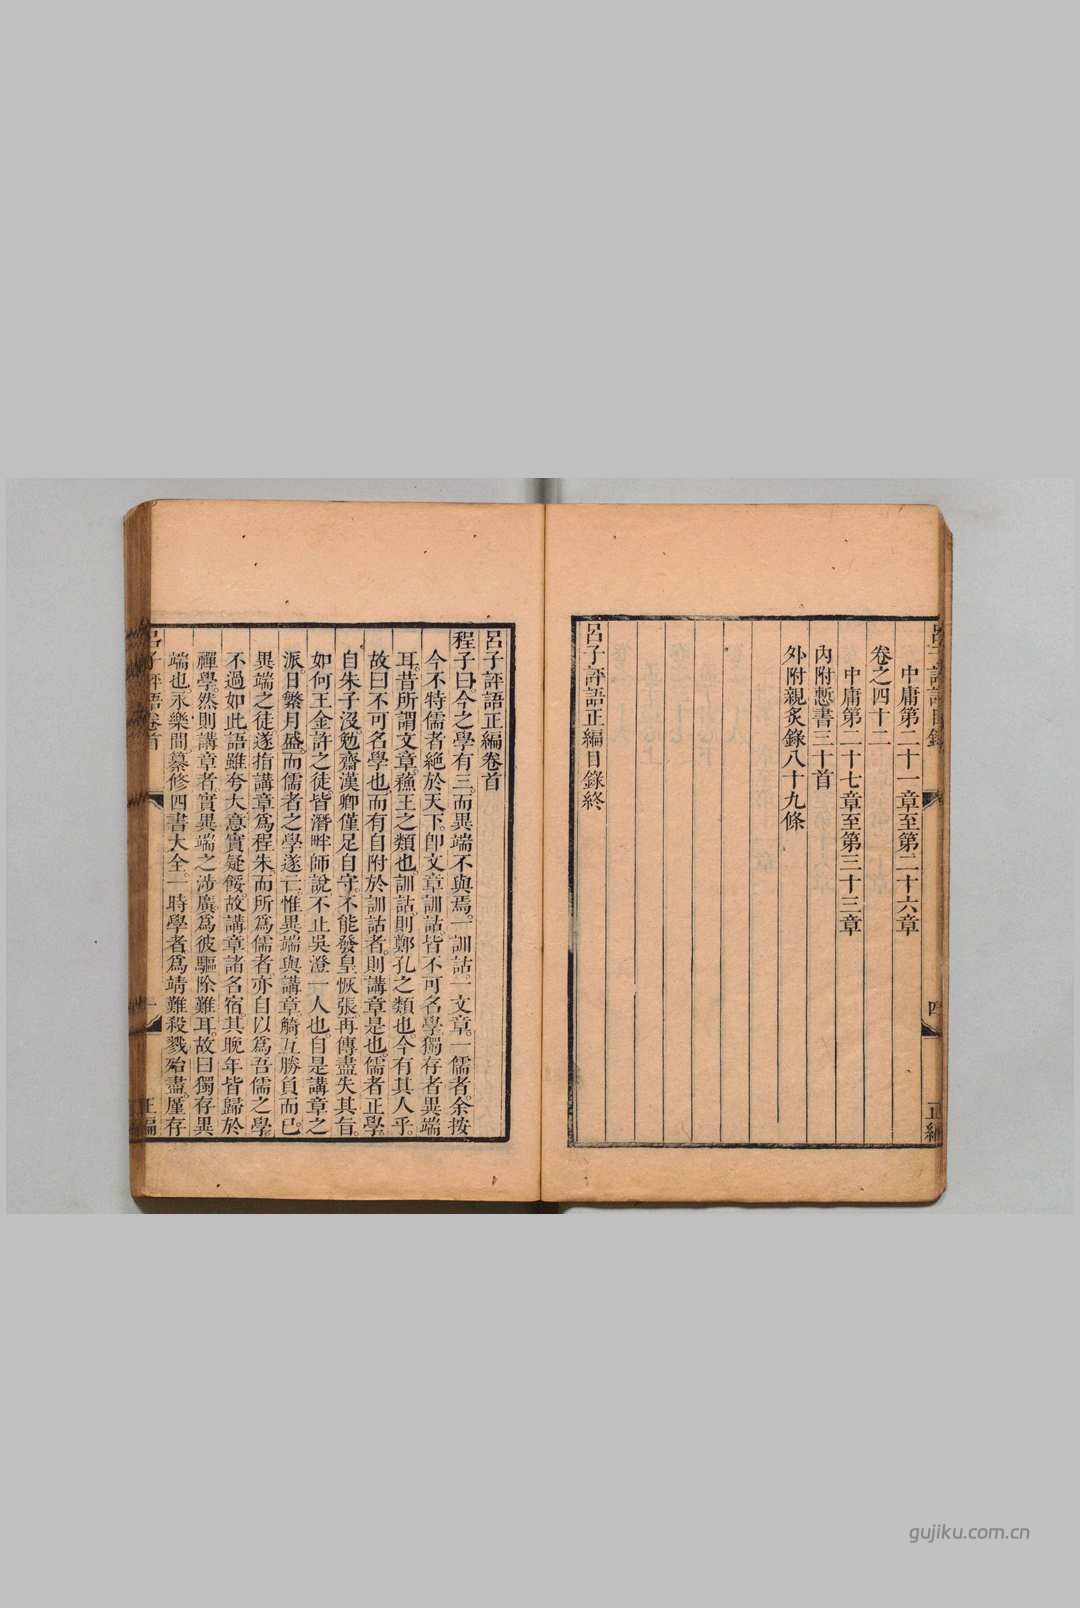 中庸第二十一章至第二十六章
卷之四十二
中庸第二十七章至第三十三章
內附慙書三十首
外附親炙錄八十九條
呂子評語正編目錄終
四
正編
呂子評語正編卷首
程子曰。今之學有三。而異端不與焉。一訓詁一文章。一儒者。余按
今不特儒者絕於天下。卽文章訓詁。皆不可名學。獨存者異端
耳。昔所謂文章。蘓王之類也。訓詁。則鄭孔之類也。今有其人乎。
故曰不可名學也。而有自附於訓詁者。則講章是也。儒者正學。
自朱子沒。勉齋漢卿僅足自守。不能發皇恢張。再傳盡失其旨。
如何王金許之徒。皆潛畔師說。不止吳澄一人也。自是講章之
派。日繁月盛。而儒者之學遂亡。惟異端與講章觭互勝負而已。
異端之徒。遂指講章爲程朱。而所爲儒者。亦自以爲吾儒之學。
不過如此。語雖夸大。意實疑餒。故講章諸名宿。其晚年皆歸於
禪學。然則講章者。實異端之涉廣。爲彼驅除難耳。故曰獨存異
端也。永樂間纂修四書大全。一時學者爲靖難殺戮殆盡。厪存
呂子評語卷首
一
正編
gujiku.com.cn